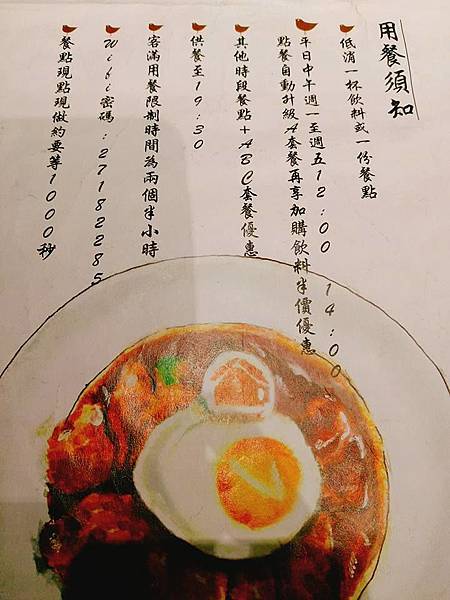 用餐須知
低消一杯飲料或一份餐點
平日中午週一至週五12:00 14:00
點餐自動升級A套餐再享加購飲料半價優惠
其他時段餐點+ABC套餐優惠
供餐至19:30
客滿用餐限制時間為兩個半小時
Wifi密碼:27182285
餐點現點現做約要等1000秒